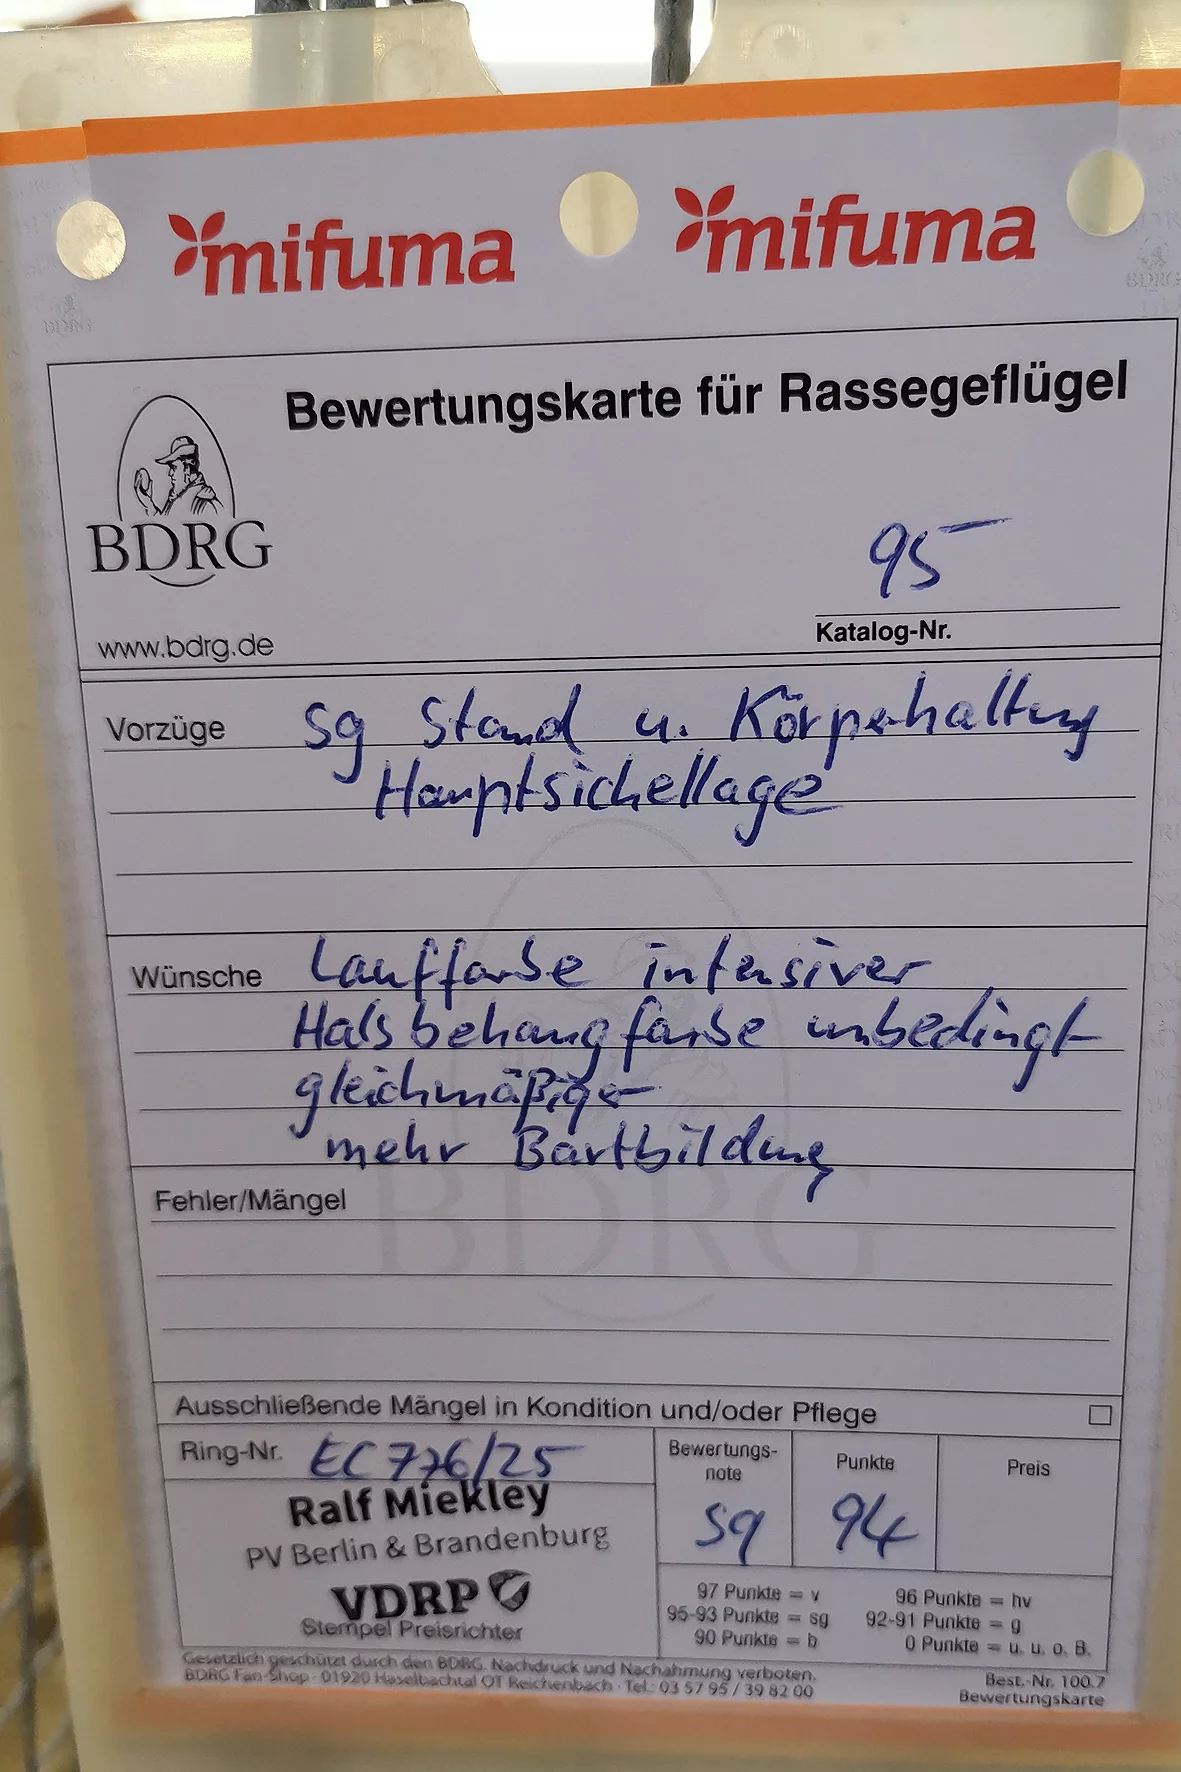 mifuma mifuma
BDRG
Bewertungskarte für Rassegeflügel
www.bdrg.de
95
Katalog-Nr.
Vorzüge sg Stand u. Körperhaltung
Hauptsichellage
Wünsche Lauffarbe intensiver
Halsbehangfarbe unbedingt
gleichmäßiger
mehr Bartbildung
BDRG
Fehler/Mängel
Ausschließende Mängel in Kondition und/oder Pflege
Ring-Nr. EC 776/25
Ralf Miekley
PV Berlin & Brandenburg
VDRP
Stempel Preisrichter
Bewertungs-
note
sg
Punkte
94
Preis
97 Punkte = v 96 Punkte = hv
95-93 Punkte = sg 92-91 Punkte = g
90 Punkte = b 0 Punkte = u. u. o. B.
Gesetzlich geschützt durch den BDRG. Nachdruck und Nachahmung verboten.
BDRG Fan-Shop · 01920 Haselbachtal OT Reichenbach · Tel.: 03 57 95 / 39 82 00
Best.-Nr. 100.7
Bewertungskarte